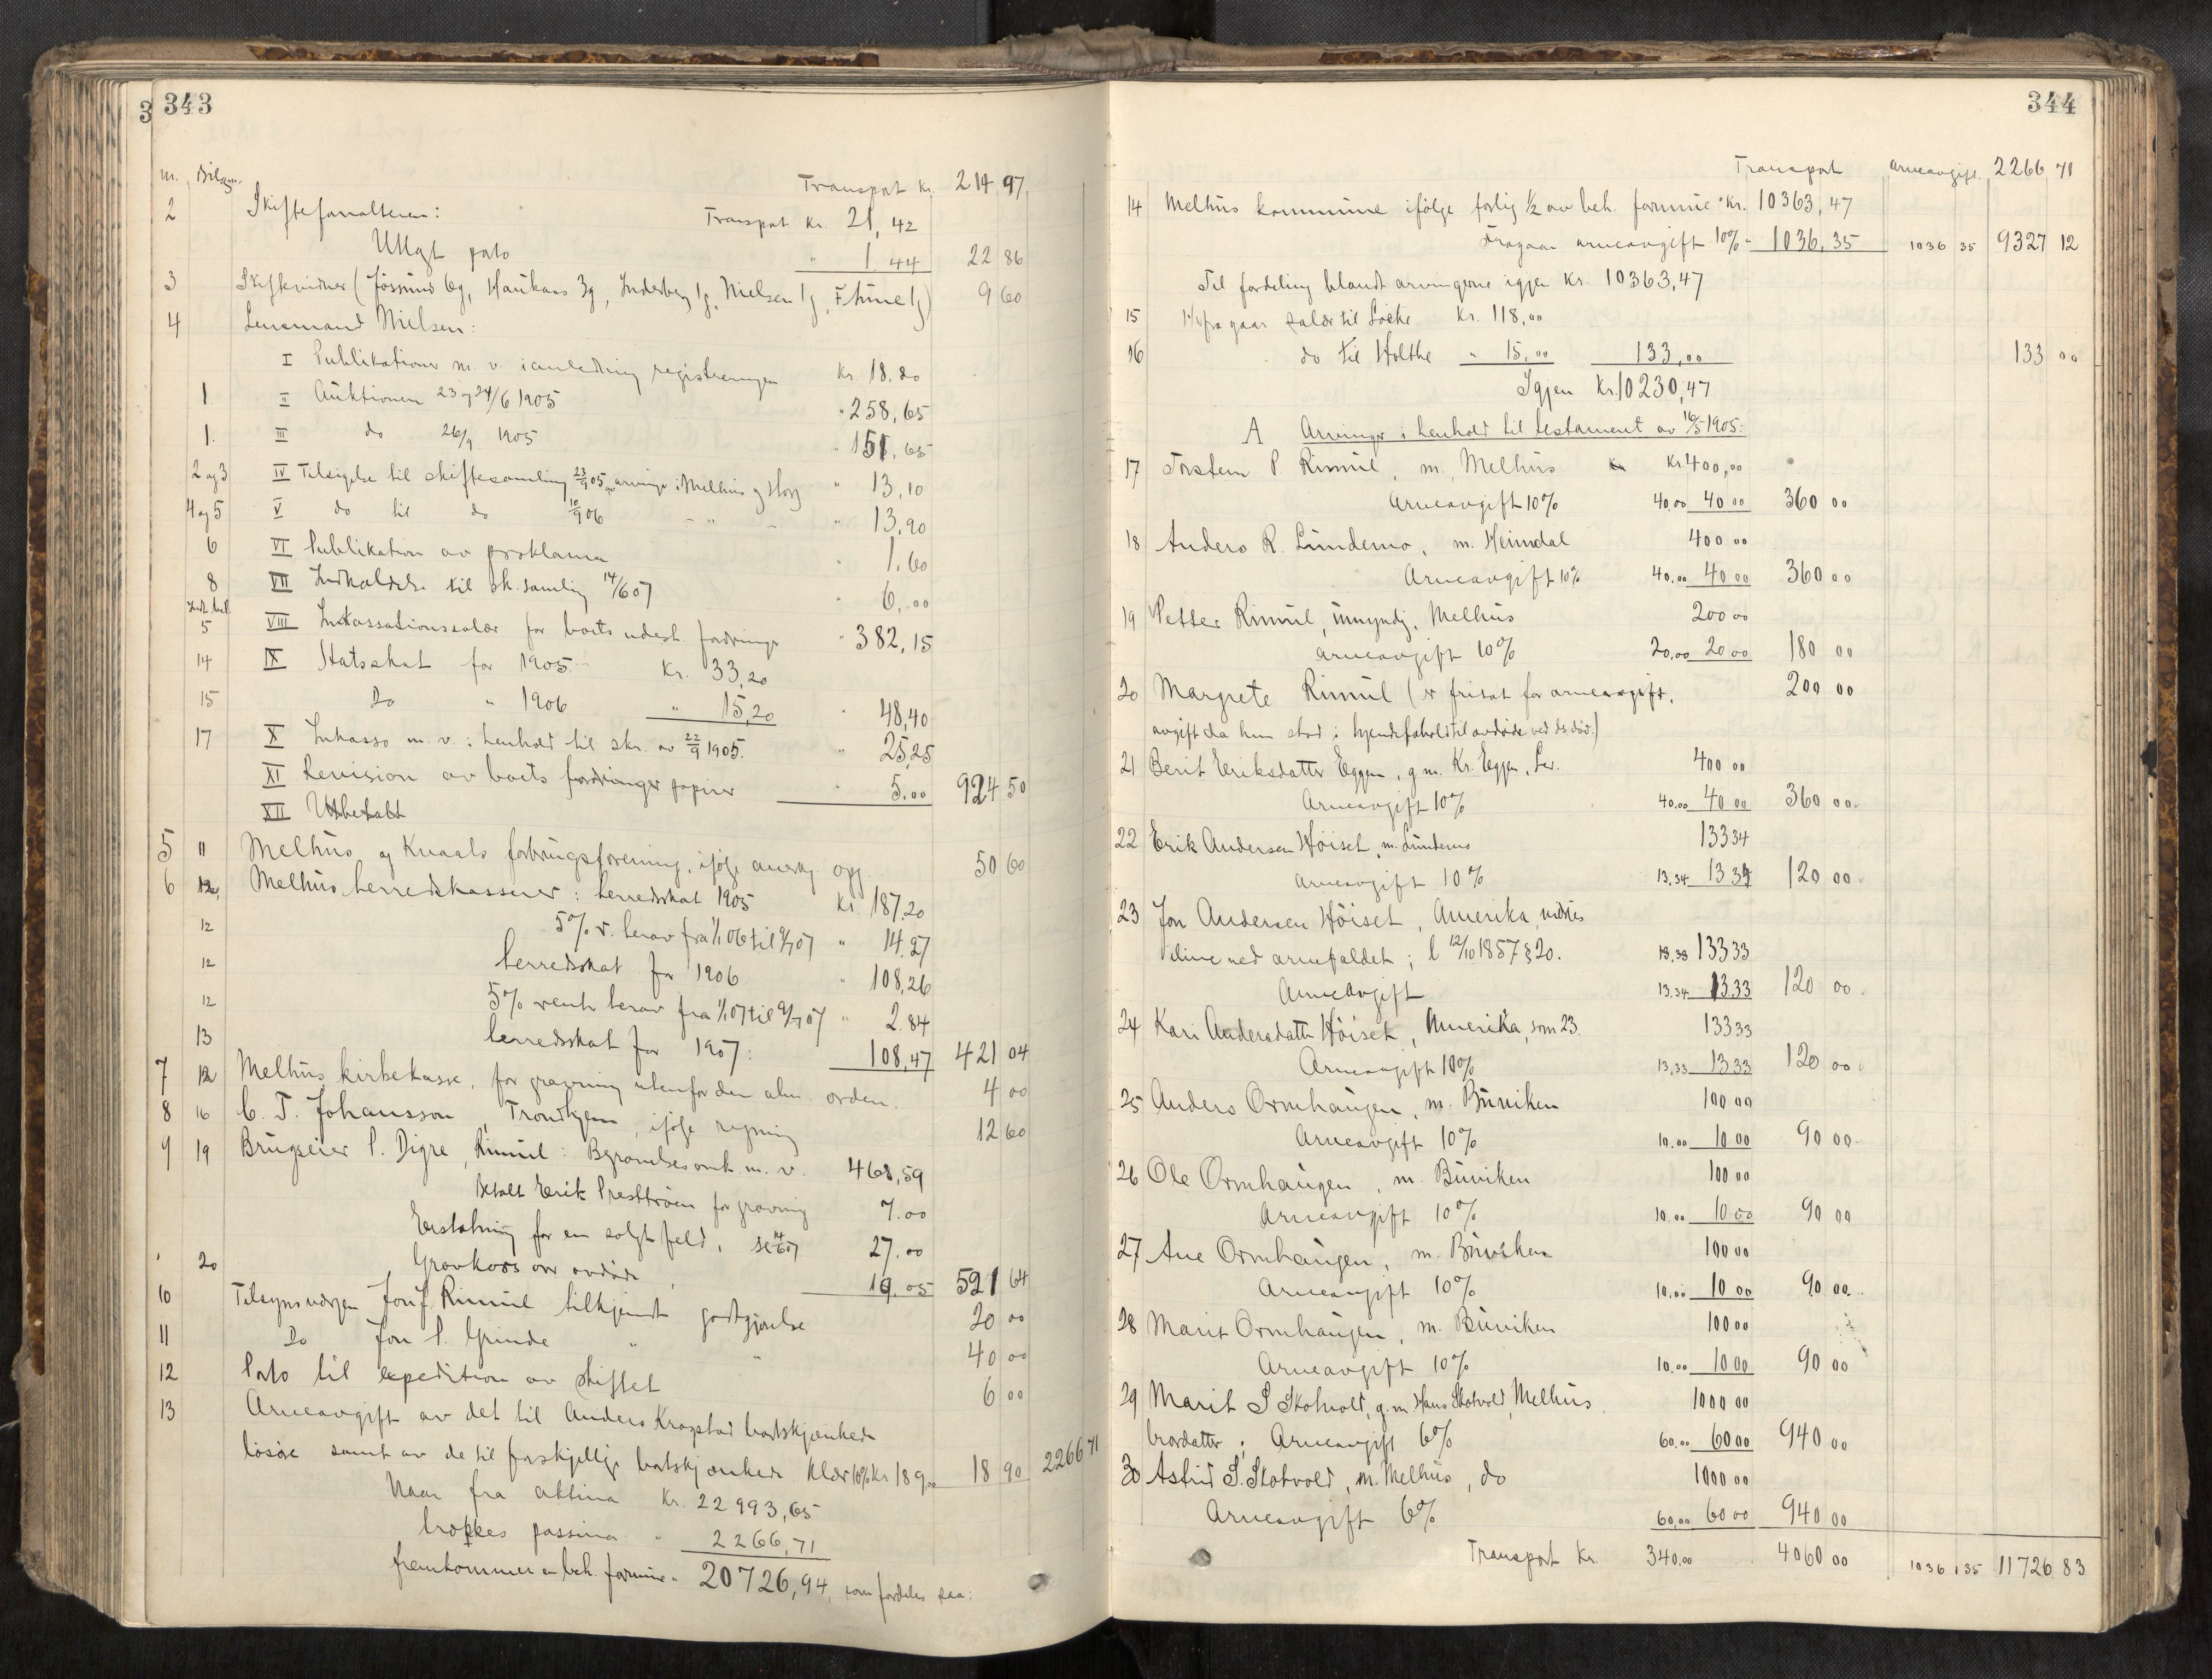 343
m. Bilagn. Transport Kr. 214,97
2 Skifteforvalteren: Transport Kr. 21,42
Utlagt porto " 1.44 22 86
3 Skiftevidner (Jøssund 6g, Haukaas 3g, Inderberg 1g, Nielsen 1g, Thine 1g) 9 60
4 Lensmand Nielsen:
I Publikationer m. v. i anledning registreringen Kr. 18.80
1. II Auktionen 23 og 24/6 1905 " 258,65
1. III do 26/9 1905 " 151,65
2 og 3 IV Tilsigelse til skiftesamling 23/9 05 av arvinger i Melhus og Horg " 13,10
4 og 5 V do til do 10/9 06 - " - " 13,90
6 VI Publikation av proklama " 1,60
8 VII Indkaldelse til sk. samling 14/6 07 " 6,00
5 VIII Inkassationssalær for boets udest. fordringer " 382,15
14 IX Statsskat for 1905. Kr. 33,20
15 Do " 1906 " 15,20 " 48,40
17 X Inkasso m. v. i henhold til skr. av 22/9 1905. " 25,25
XI Revision av boets fordringer papirer " 5.00 924 50
XII Utbetalt
5 11 Melhus og Kvaals forbrugsforening, ifølge opg. 50 60
6 12, Melhus herredskasserer: herredsskat 1905 Kr. 187.20
12 5% r. herav fra 1/1 06 til 9/7 07 " 14.27
12 herredsskat for 1906 " 108,26
12 5% rente herav fra 1/1 07 til 9/7 07 " 2.84
13 herredsskat for 1907: 108,47 421 04
7 12 Melhus kirkekasse, for gravning utenfor den alm. orden. 4 00
8 16 C. T. Johansson, Trondhjem, ifølge regning 12 60
9 19 Brugseier P. Digre, Rimul: Begravelsesomk. m. v. 468,59
Betalt Erik Presttrøen for gravning 7.00
Erstatning for en solgt feld, se 14/6 07 27.00
" 20 Gravkors over avdøde 19.05 521 64
10 Tilsynsværgen Jon J. Rimul tilkjendt godtgjørelse 20 00
11 Do Jon P. Grinde " " 40 00
12 Porto til expedition av skiftet 6 00
13 Arveavgift av det til Anders Kregstad bortskjænkede
løsøre samt av de til forskjellige bortskjænkede klær 10% Kr 189,00 18 90 2266 71
Naar fra aktiva Kr. 22993,65
trækkes passiva " 2266,71
fremkommer en beh. formue " 20726,94, som fordeles saa:
344
Transport Arveavgift. 2266 71
14 Melhus kommune ifølge forlig 1/2 av beh. formue Kr. 10363,47
Fragaar arveavgift 10% " 1036,35 1036 35 9327 12
Til fordeling blandt arvingerne igjen Kr. 10363,47
15 fra gaar salær til Løcke Kr. 118,00
16 do til Holthe " 15,00 133,00 133 00
Igjen Kr. 10230,47
A Arvinger i henhold til testament av 16/5 1905:
17 Torstein P. Rimul, m. Melhus Kr. 400,00
Arveavgift 10% 40.00 40 00 360 00
18 Anders R. Lundemo, m. Heimdal 400 00
Arveavgift 10% 40.00 40 00 360 00
19 Petter Rimul, umyndg. Melhus 200 00
Arveavgift 10% 20,00 20 00 180 00
20 Margrete Rimul (er fritat for arveavgift. 200 00
avgift da hun stod i tjenesteforhold til avdøde ved ds død.)
21 Berit Eriksdatter Eggen, g. m. Kr. Eggen, Ler. 400 00
Arveavgift 10% 40.00 40 00 360 00.
22 Erik Andersen Høiset, m. Lundemo 133 34
Arveavgift 10% 13,34 13 34 120 00.
23 Jon Andersen Høiset, Amerika,
ilive ved arvefaldet; l 12/10 1857 § 20. 13,33 133 33
Arveavgift 13.34 13.33 120 00.
24 Kari Andersdatter Høiset, Amerika, som 23. 133 33
Arveavgift 10% 13,33 13 33 120 00.
25 Anders Ormhaugen, m. Buviken 100 00
Arveavgift 10% 10.00 10 00 90 00.
26 Ole Ormhaugen, m. Buviken 100 00
Arveavgift 10% 10.00 10 00 90 00
27 Ane Ormhaugen, m. Buviken 100 00
Arveavgift 10% 10.00 10 00 90 00.
28 Marit Ormhaugen, m. Buviken 100 00
Arveavgift 10% 10.00 10 00 90 00
29 Marit S Skotvold, g. m Hans Skotvold, Melhus. 1000 00
brordatter; Arveavgift 6% 60.00 60 00 940 00
30 Astrid S. Skotvold, m. Melhus, do 1000 00
Arveavgift 6% 60,00 60 00 940 00
Transport Kr. 340.00 4060 00 1036 35 11726 83